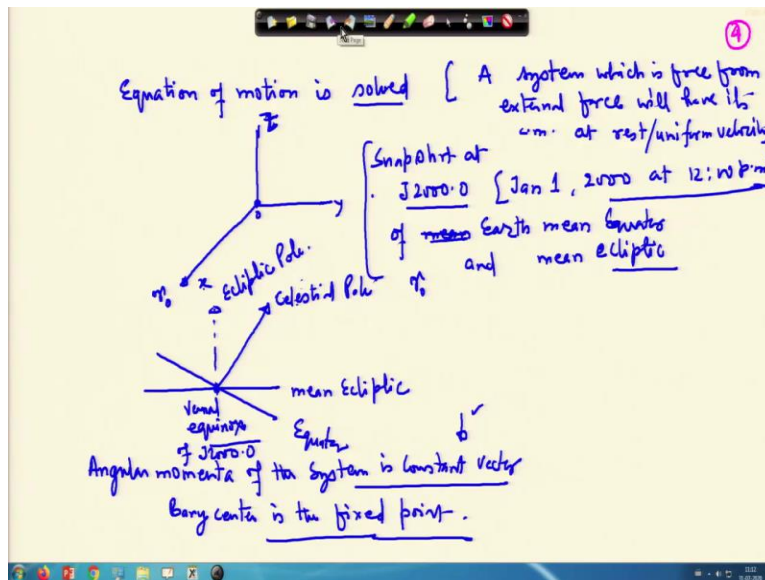 4
Equation of motion is solved { A system which is free from
external force will have its
c.m. at rest/uniform velocity
z
o y
γ₀ x
Snapshot at
J2000.0 [Jan 1, 2000 at 12:00 p.m
of mean Earth mean Equator
and mean ecliptic
γ₀
Ecliptic Pole.
Celestial Pole
mean Ecliptic
Equator
Vernal
equinox
of J2000.0
Angular momenta of the System is Constant vector
Bary center is the fixed point.
11:12